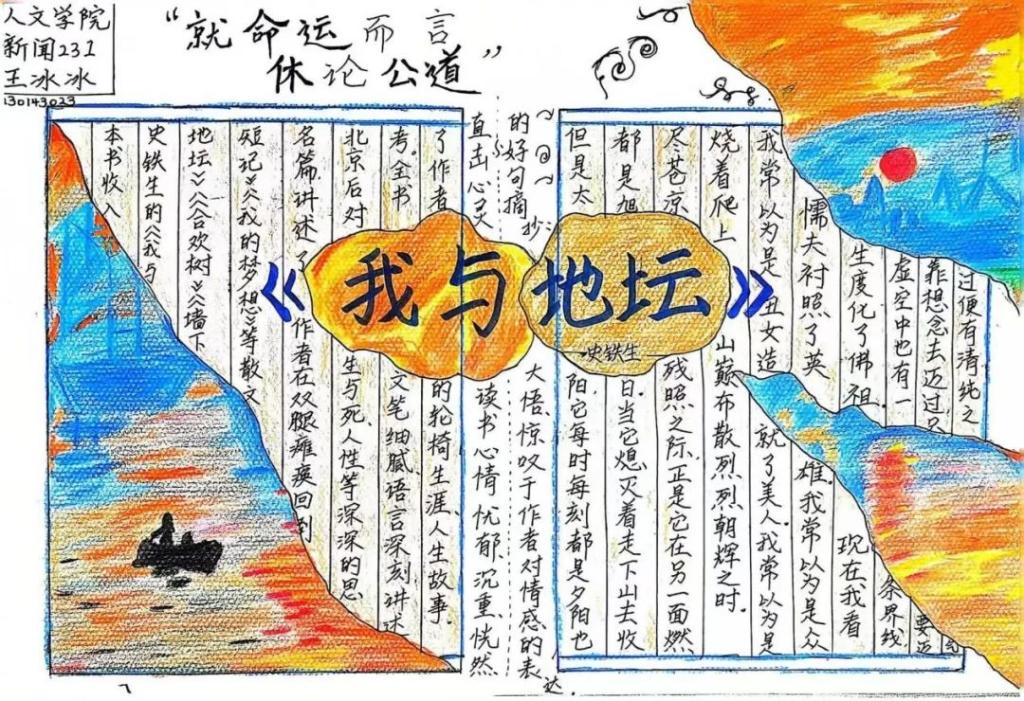 人文学院
新闻231
王冰冰
130143023
“就命运而言
休论公道”
《我与地坛》
史铁生
本书收入
史铁生的《我与
地坛》《合欢树》《墙下
短记》《我的梦想》等散文
名篇,讲述了作者在双腿瘫痪回到
北京后对生与死、人性等深深的思
考。全书文笔细腻,语言深刻,讲述
了作者的轮椅生涯、人生故事.
直击心灵
的好句摘抄:
读书心情忧郁、沉重,恍然
大悟,惊叹于作者对情感的表达.
但是太阳,它每时每刻都是夕阳也
都是旭日.当它熄灭着走下山去收
尽苍凉残照之际,正是它在另一面燃
烧着爬上山巅布散烈烈朝辉之时.
我常以为是丑女造就了美人.我常以为是
懦夫衬照了英雄.我常以为是众
生度化了佛祖.现在,我看
虚空中也有一条界线
靠想念去迈过只要迈
过便有清纯之